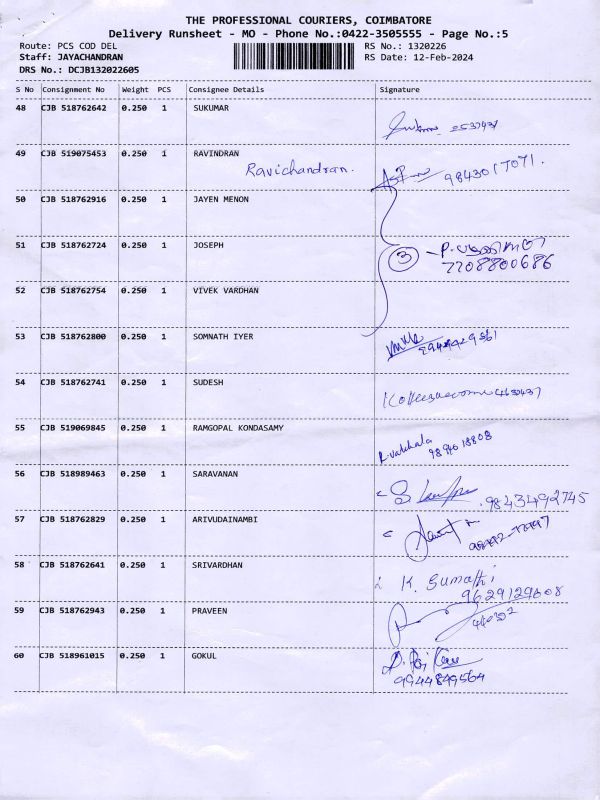 THE PROFESSIONAL COURIERS, COIMBATORE
Delivery Runsheet - MO - Phone No.:0422-3505555 - Page No.:5
Route: PCS COD DEL RS No.: 1320226
Staff: JAYACHANDRAN RS Date: 12-Feb-2024
DRS No.: DCJB132022605
S No Consignment No Weight PCS Consignee Details Signature
48 CJB 518762642 0.250 1 SUKUMAR
49 CJB 519075453 0.250 1 RAVINDRAN
Ravichandran. 9843017071.
50 CJB 518762916 0.250 1 JAYEN MENON
51 CJB 518762724 0.250 1 JOSEPH
3
7708800686
52 CJB 518762754 0.250 1 VIVEK VARDHAN
53 CJB 518762800 0.250 1 SOMNATH IYER
54 CJB 518762741 0.250 1 SUDESH
55 CJB 519069845 0.250 1 RAMGOPAL KONDASAMY
56 CJB 518989463 0.250 1 SARAVANAN
9843492745
57 CJB 518762829 0.250 1 ARIVUDAINAMBI
58 CJB 518762641 0.250 1 SRIVARDHAN
K. Sumathi
9629129608
59 CJB 518762943 0.250 1 PRAVEEN
60 CJB 518961015 0.250 1 GOKUL
9944849564